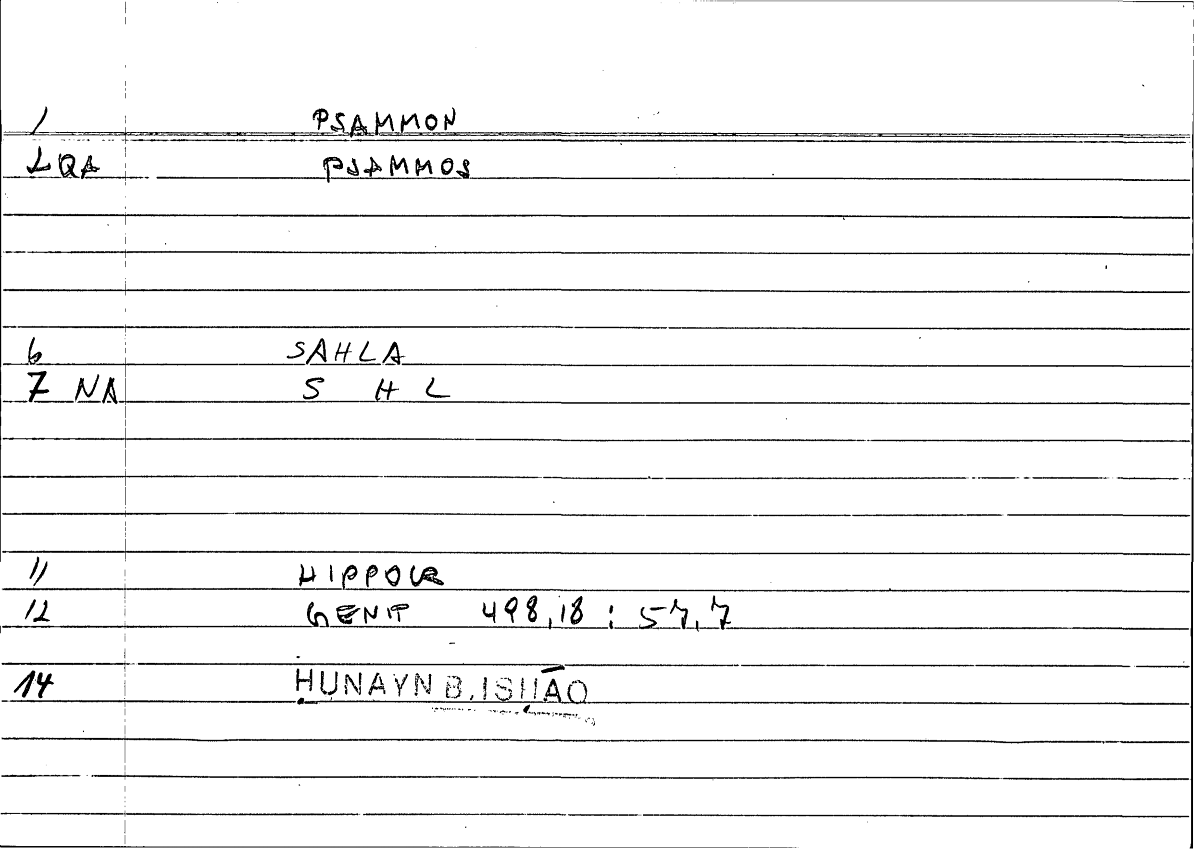 1 PSAMMON
2 QA PSAMMOS
6 SAHLA
7 NA S H L
11 HIPPOCR
12 GENIT 498,18 : 57,7
14 ḤUNAYN B. ISḤĀQ